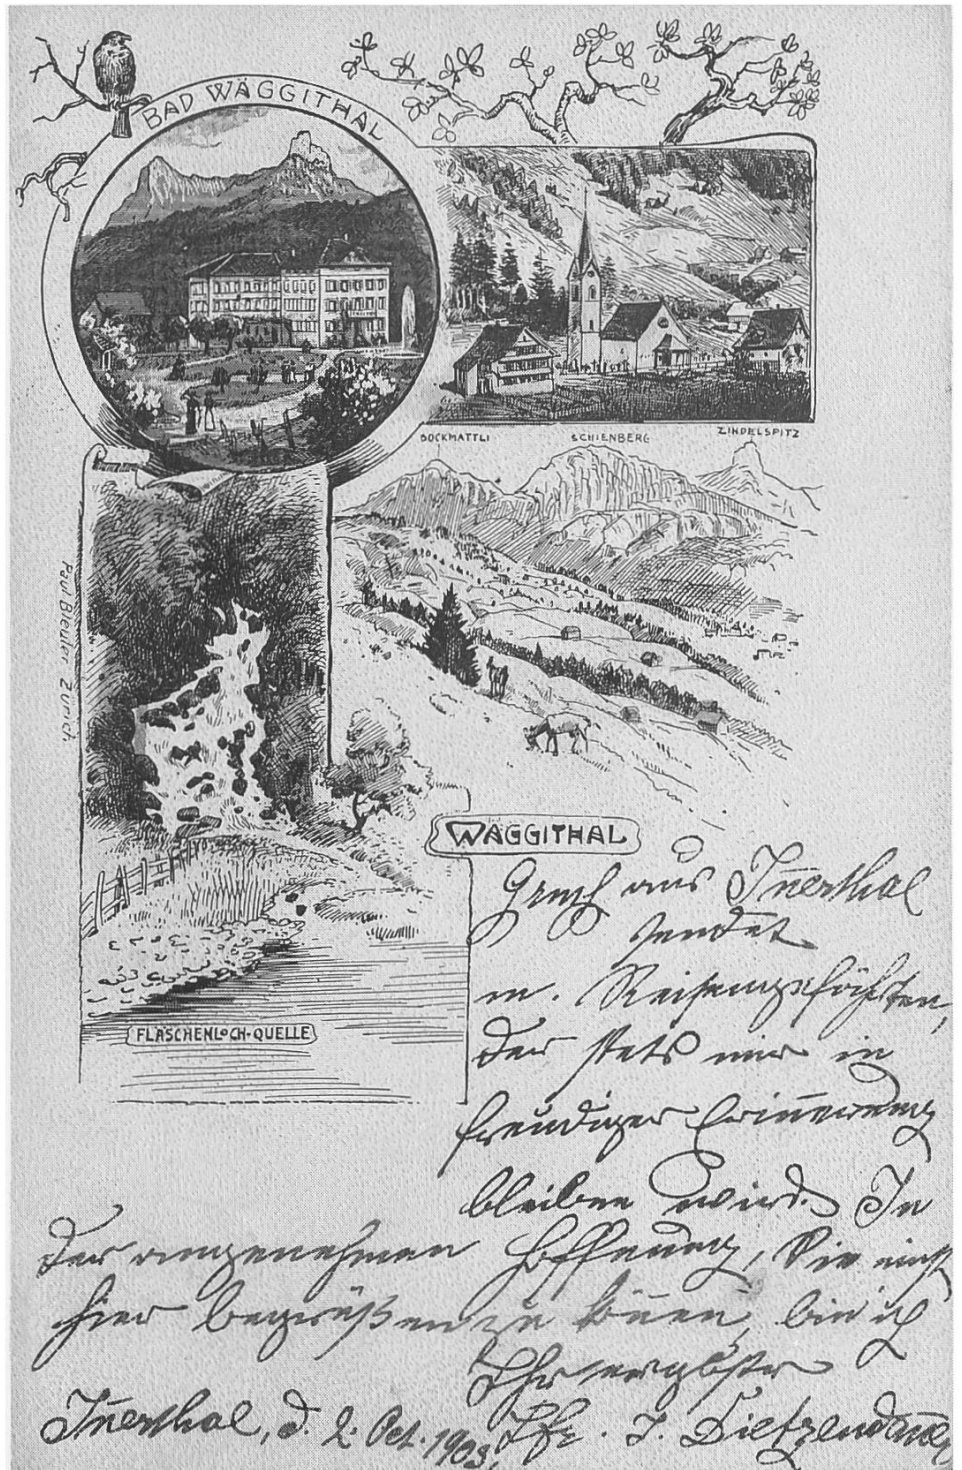 BAD WÄGGITHAL
BOCKMATTLI SCHIENBERG ZINDELSPITZ
Paul Bleuler Zürich
WÄGGITHAL
FLÄSCHENLOCH-QUELLE
Gruß aus In̄erthal
sendet
m. Reisegefährten,
der stets mir in
freudiger Erin̄erung
bleiben wird. In
der angenehmen Hoffnung, Sie einst
hier begrüßen zu kön̄en, bin ich
Ihr ergbstr
In̄erthal, d. 2. Oct. 1903. Pfr. J.